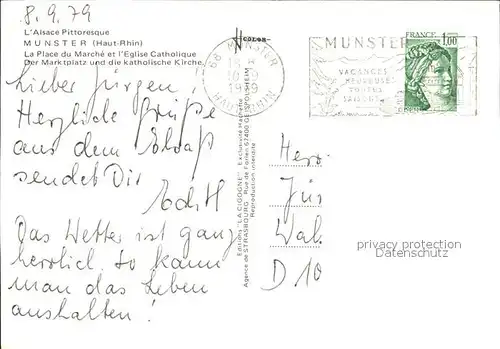 8.9.79
L'Alsace Pittoresque
MUNSTER (Haut-Rhin)
La Place du Marché et l'Eglise Catholique
Der Marktplatz und die katholische Kirche
COLOR
68 MUNSTER
10-9
1979
HAUT-RHIN
MUNSTER
VACANCES
HEUREUSES
TOUTES
SAISONS
FRANCE
1,00
Lieber Jürgen,
Herzliche Grüße
aus dem Elsaß
sendet Dir
Edith
Das Wetter ist ganz
herrlich. So kann
man das Leben
aushalten!
Editions "LA CIGOGNE" - Exclusivité Hachette
Agence de STRASBOURG - Rue de Forlen 67400 GEISPOLSHEIM
Reproduction interdite
Herr
Jür
Wal
D 10
privacy protection
Datenschutz